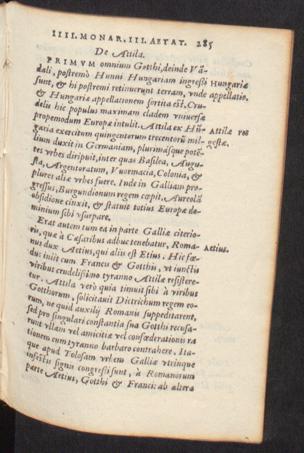 IIII. MONAR. III. AETAT. 285
De Attila.
PRIMVM omnium Gotthi, deinde Vā-
dali, postremò Hunni Hungariam ingressi
sunt, & hi postremi retinuerunt terram, unde
& Hungariæ appellationem sortita est. Cru-
delis hic populus maximam cladem vniuersæ
propemodum Europæ intulit. Attila ex Hū-
garia exercitum quingentorum
lium duxit in Germaniam, plurimasque poten-
tes vrbes diripuit, inter quas Basilea, Augu-
sta, Argentoratum, Vuormacia, Colonia, &
plures aliæ vrbes fuere. Inde in Galliam pro-
gressus, Burgundionum regem capit, Aureliā
obsidione cinxit, & statuit totius Europæ do-
minium sibi vsurpare.
Erat autem tum ea in parte Galliæ citerio-
ris, quæ à Cæsaribus adhuc tenebatur, Roma-
nus dux Aetius, qui alias est Etius. Hic fœ-
dus iniit cum Francis & Gotthis, vt iunctis
viribus crudelissimo tyranno Attilæ resistere-
tur. Attila verò quia timuit sibi à viribus
Gotthorum, solicitauit Dittrichum regem eo-
rum, ne quid auxilij Romanis suppeditarent,
sed pro singulari constantia sua Gotthi recusa-
runt vllam vel amicitiæ vel confœderationis ra-
tionem cum tyranno barbaro contrahere. Ita-
que apud Tolosam vrbem Galliæ vtrinque
infestis signis congressi sunt, à Romanorum
parte Aetius, Gotthi & Franci: ab altera
Hungariæ
appellatio.
Attilæ res
gestæ.
Aetius.